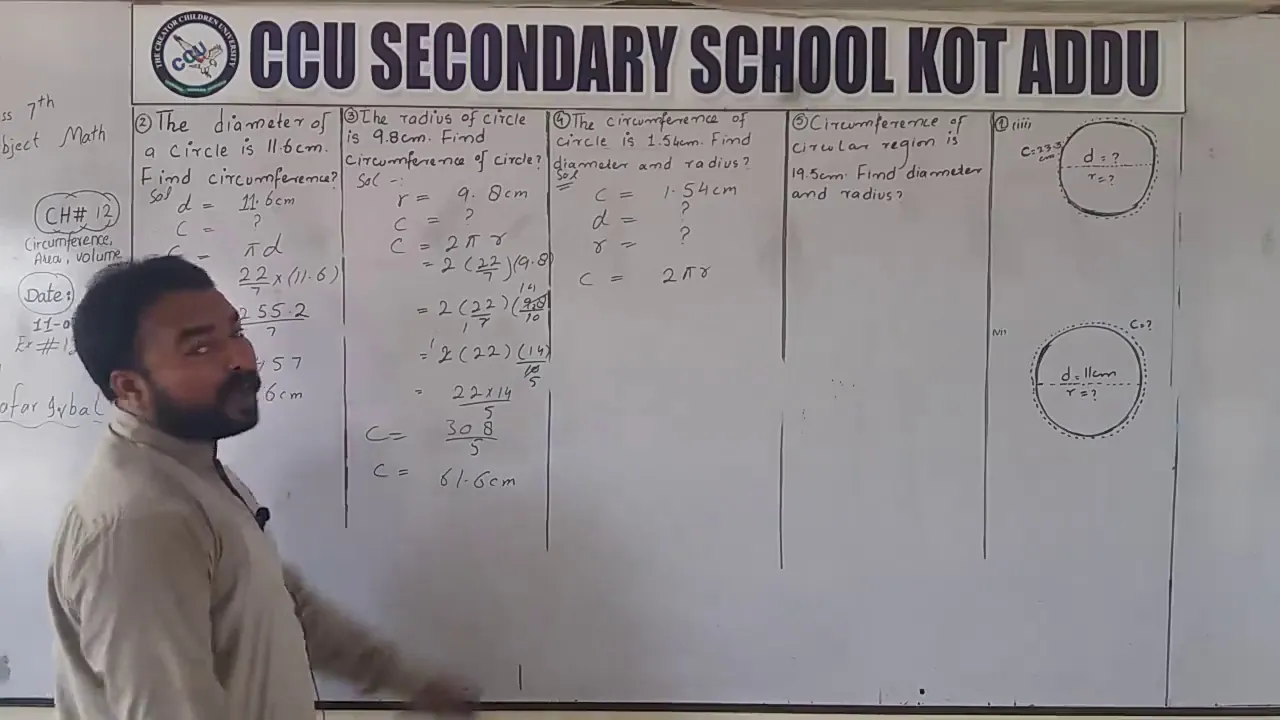 THE CREATOR CHILDREN UNIVERSITY
CCU
CCU SECONDARY SCHOOL KOT ADDU
ss 7th
bject Math
CH# 12
Circumference,
Area, volume
Date:
11-0
Ex #1
② The diameter of
a circle is 11.6cm.
Find circumference?
Sol
d = 11.6cm
C = ?
= πd
22/7 × (11.6)
255.2/7
57
6cm
③ The radius of circle
is 9.8cm. Find
Circumference of circle?
Sol -:
r = 9.8cm
C = ?
C = 2πr
= 2 (22/7) (9.8)
= 2 (22/7) (9.8/10)
14
1
= 2 (22) (14/10)
5
= 22×14/5
C = 308/5
C = 61.6cm
④ The circumference of
circle is 1.54cm. Find
diameter and radius?
Sol
C = 1.54cm
d = ?
r = ?
C = 2πr
⑤ Circumference of
circular region is
19.5cm. Find diameter
and radius?
① (iii)
cm
d = ?
r = ?
C=?
d = 11cm
r = ?